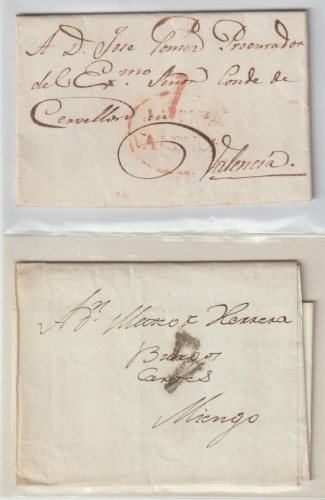 A D. Jose Gomez Procurador
del Ex.mo Señor Conde de
Cervellon en
7
Valencia.
A D.n Marco de Herrera
Miengo